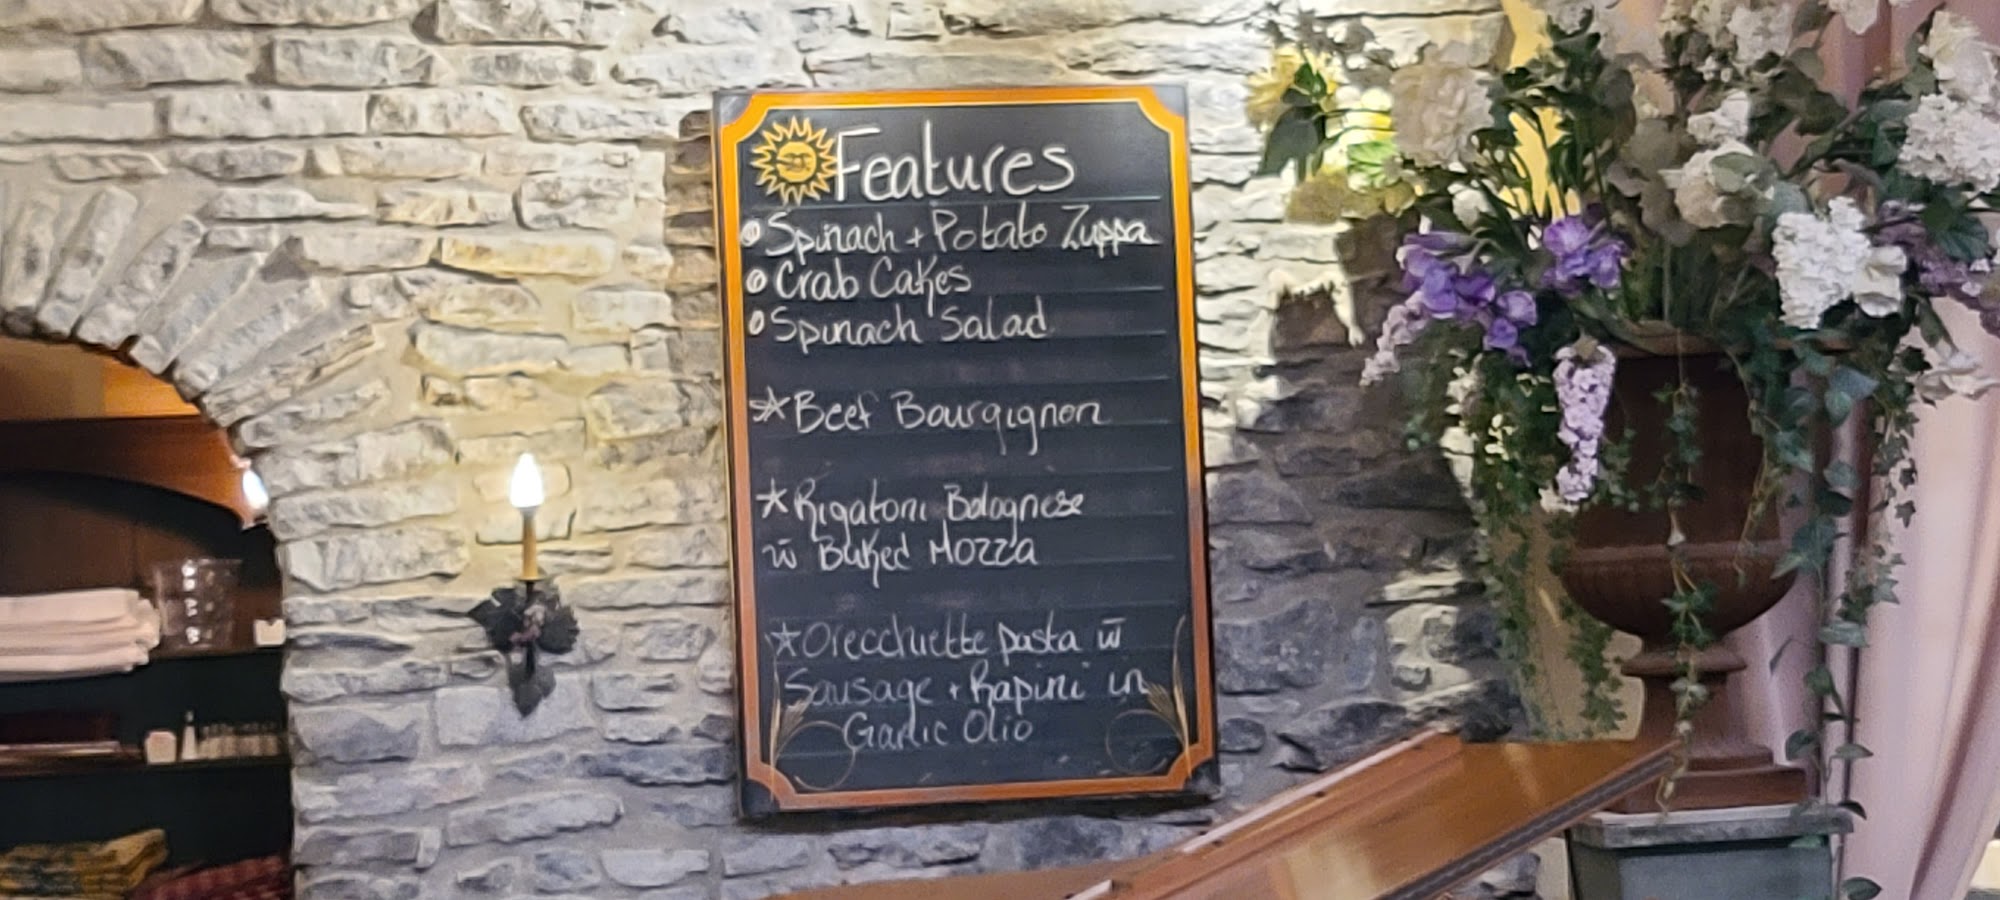 Features
Spinach + Potato Zuppa
Crab Cakes
Spinach Salad
Beef Bourgignon
Rigatoni Bolognese
w̄ Baked Mozza
Orecchiette pasta w̄
Sausage + Rapini in
Garlic Olio